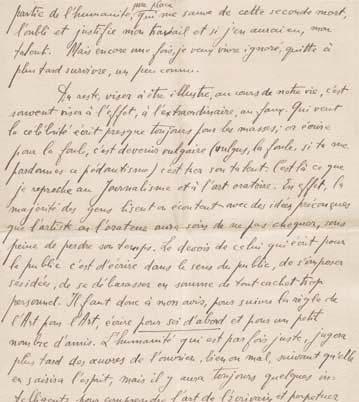 partie de l'humanité, une place qui me sauve de cette seconde mort,
l'oubli et justifie mon travail et si j'en aurai eu, mon
talent. Mais encore une fois, je veux vivre ignoré, quitte à
plus tard survivre, un peu connu.
Du reste, viser à être illustre, au cours de notre vie, c'est
souvent viser à l'effet, à l'extraordinaire, au faux. Qui veut
la célébrité écrit presque toujours pour les masses; or écrire
pour la foule, c'est devenir vulgaire (vulgus, la foule, si tu me
pardonnes ce pédantisme) c'est tuer son talent. C'est là ce que
je reproche au Journalisme et à l'art oratoire. En effet, la
majorité des gens lisent ou écoutent avec des idées préconçues
que l'artiste ou l'orateur aura soin de ne pas choquer, sous
peine de perdre son temps. Le devoir de celui qui écrit pour
le public c'est d'écrire dans le sens du public, de s'imposer
ses idées, de se débarasser en somme de tout cachet trop
personnel. Il faut donc à mon avis, pour suivre la règle de
l'Art pour l'Art, écrire pour soi d'abord et pour un petit
nombre d'amis. L'humanité qui est par fois juste, jugera
plus tard des œuvres de l'ouvrier, bien ou mal, suivant qu'elle
en saisira l'esprit, mais il y aura toujours quelques in-
telligents pour comprendre l'art de l'écrivain et perpétuer